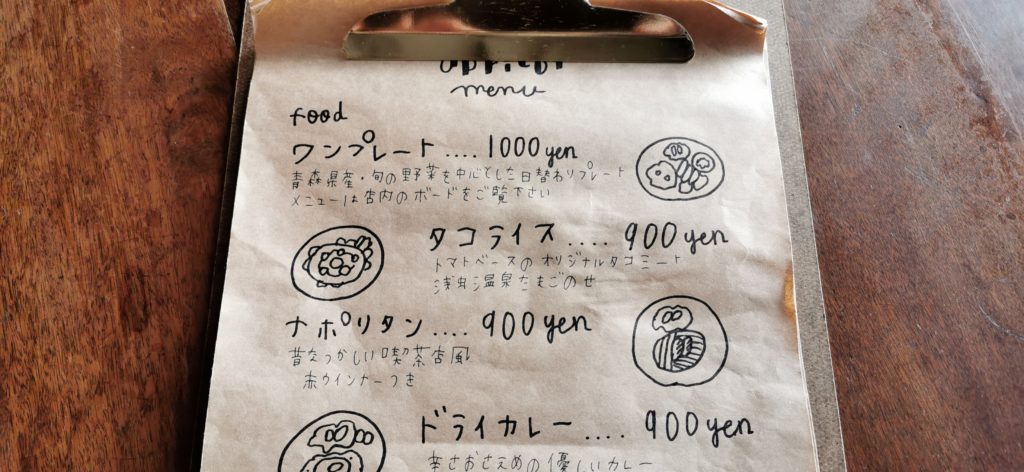 menu
food
ワンプレート .... 1000 yen
青森県産・旬の野菜を中心とした日替わりプレート
メニューは店内のボードをご覧下さい
タコライス .... 900 yen
トマトベースのオリジナルタコミート
浅虫温泉たまごのせ
ナポリタン .... 900 yen
昔なつかしい喫茶店風
赤ウインナーつき
ドライカレー .... 900 yen
辛さおさえめの優しいカレー